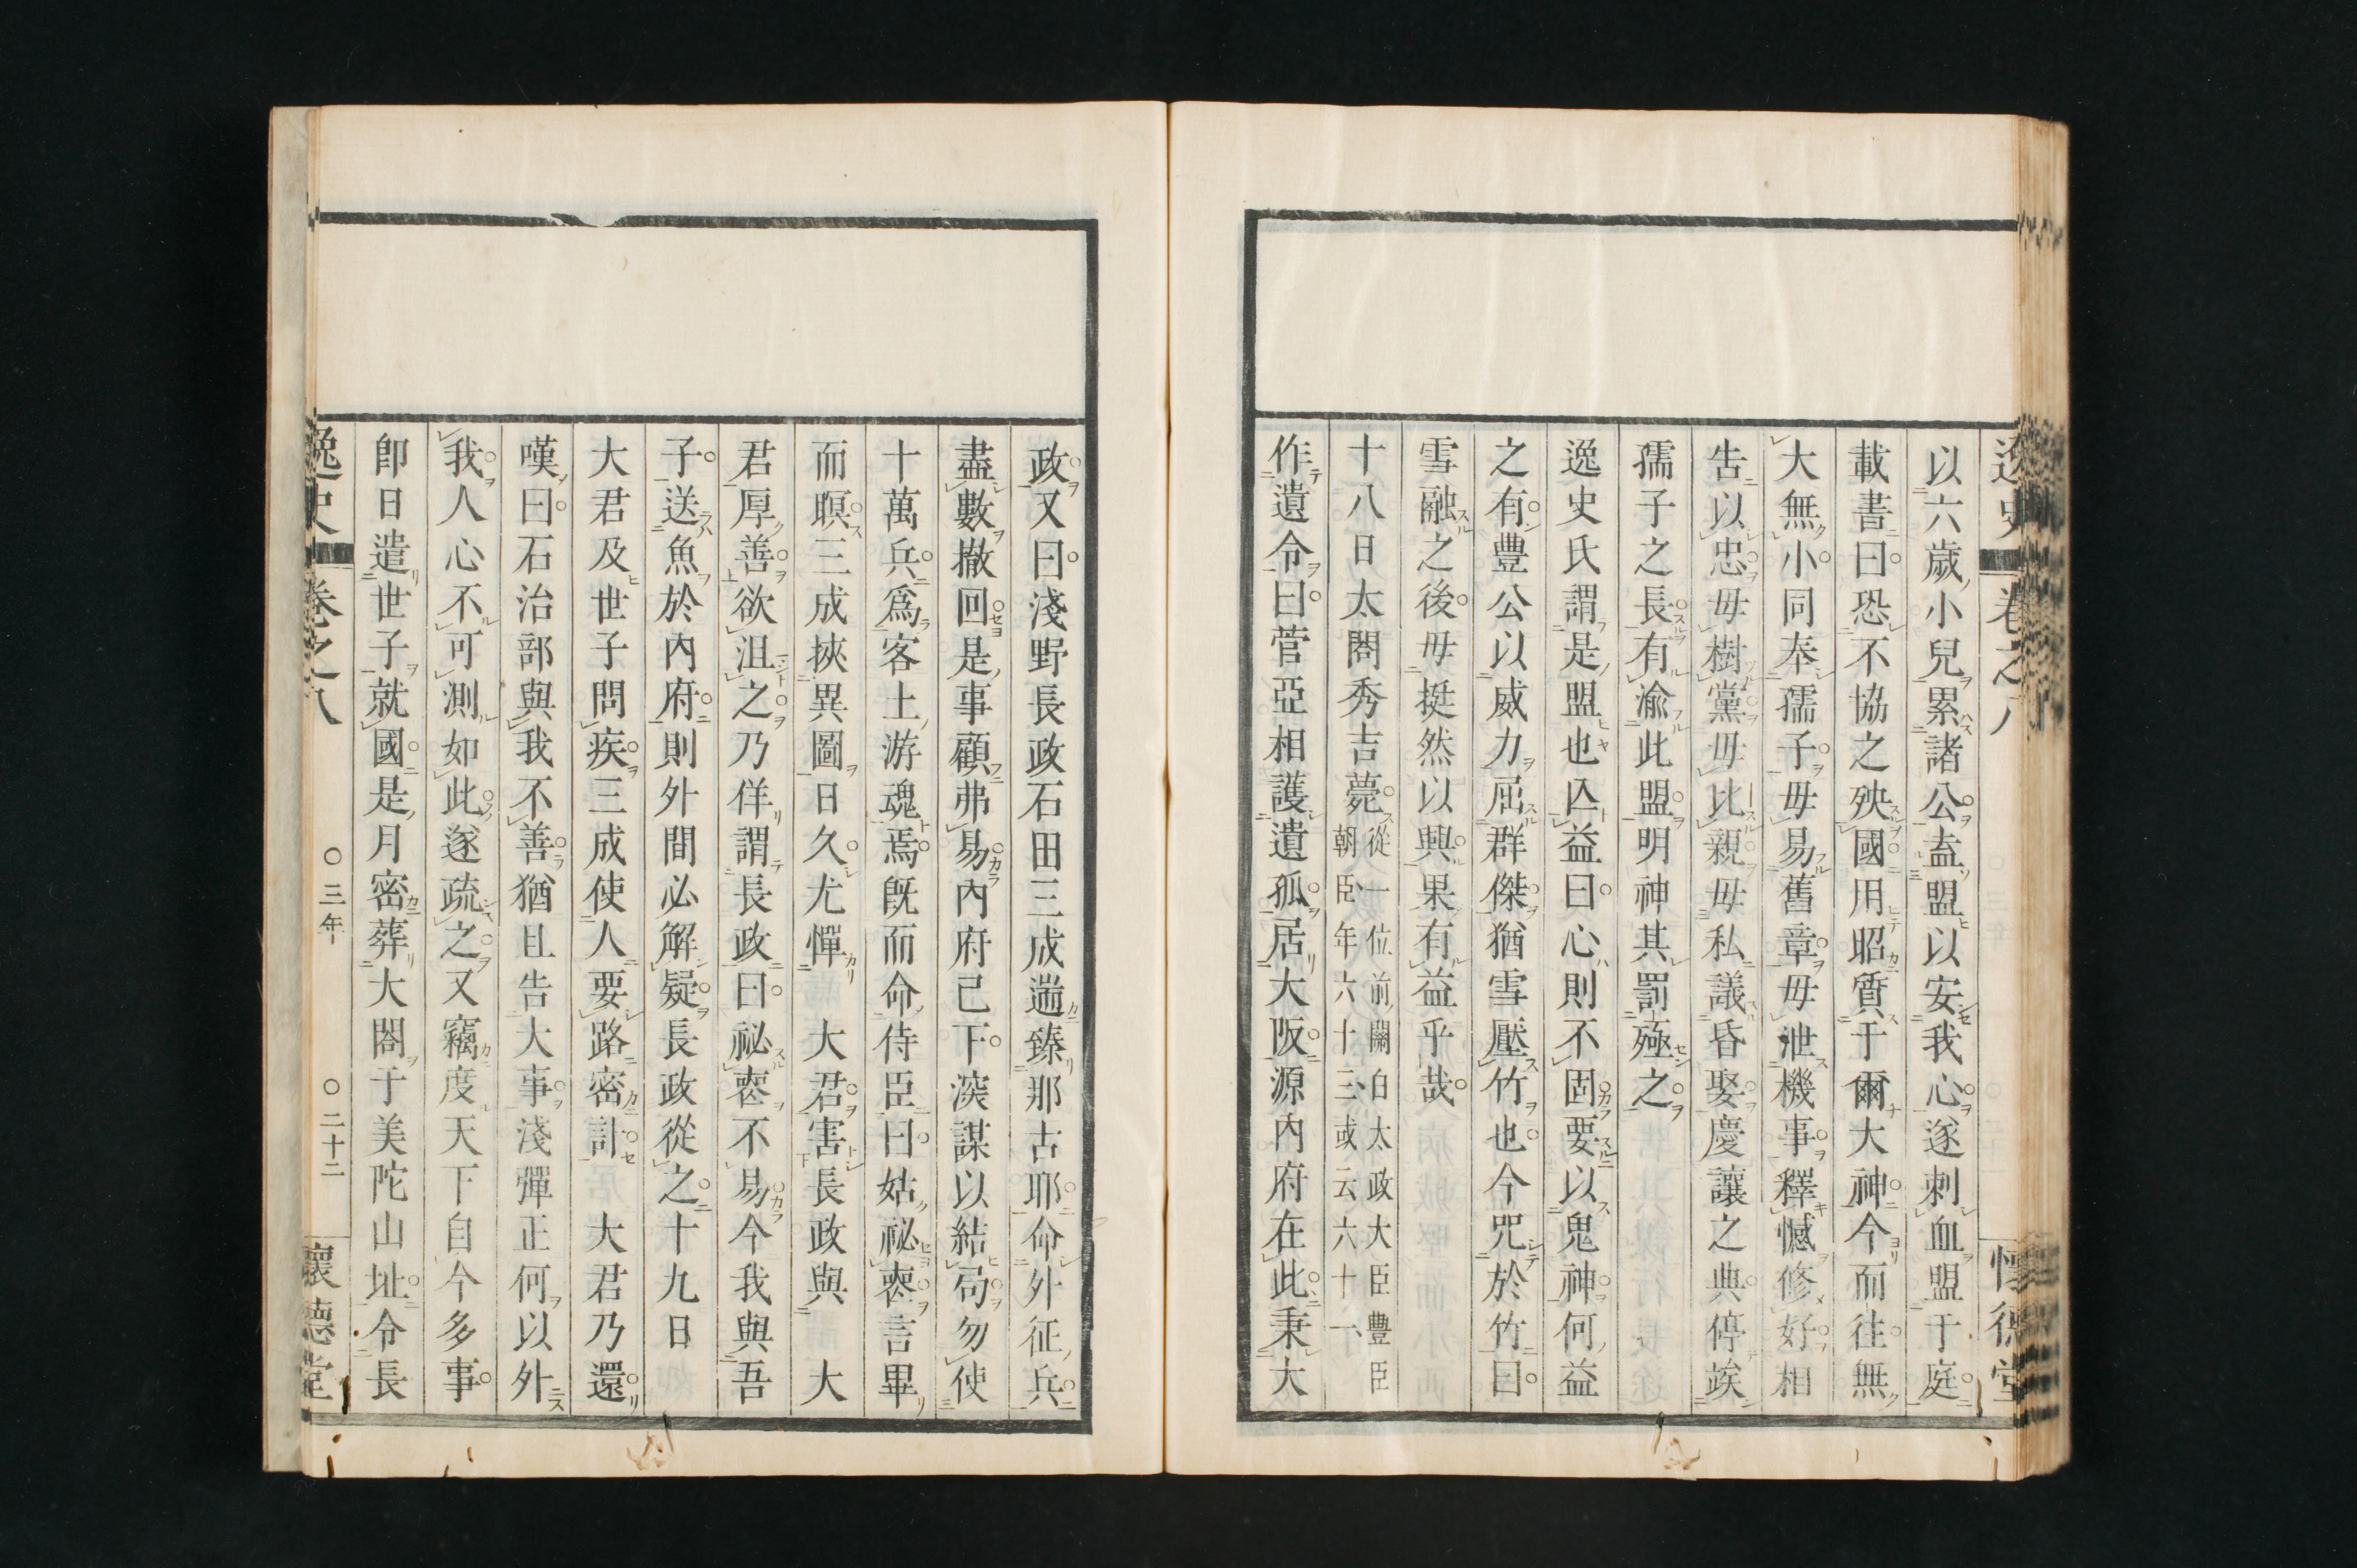 逸史 卷之八 懷德堂
以六歲小兒累諸公盍盟以安我心遂刺血盟于庭
載書曰恐不協之殃國用昭質于爾大神今而往無
大無小同奉孺子毋易舊章毋泄機事釋憾修好相
告以忠毋樹黨毋比親毋私議昏娶慶讓之典停竢
孺子之長有渝此盟明神其罰殛之
逸史氏謂是盟也亾益曰心則不固要以鬼神何益
之有豐公以威力屈群傑猶雪壓竹也今咒於竹曰
雪融之後毋挺然以興果有益乎哉
十八日太閤秀吉薨從一位前關白太政大臣豐臣
朝臣年六十三或云六十一
作遺令曰菅亞相護遺孤居大阪源內府在此秉大
政又曰淺野長政石田三成遄臻那古耶命外征兵
盡數撤回是事顧弗易內府已下深謀以結局勿使
十萬兵爲客土游魂焉旣而命侍臣曰姑祕喪言畢
而瞑三成挾異圖日久尤憚 大君害長政與 大
君厚善欲沮之乃佯謂長政曰祕喪不易今我與吾
子送魚於內府則外間必解疑長政從之十九日
大君及世子問疾三成使人要路密訃 大君乃還
嘆曰石治部與我不善猶且告大事淺彈正何以外
我人心不可測如此遂疏之又竊度天下自今多事
卽日遣世子就國是月密葬大閤于美陀山址令長
逸史 卷之八 〇三年 〇二十二 懷德堂